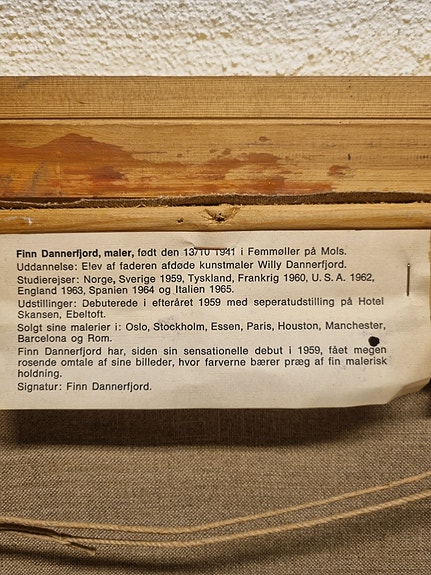 Finn Dannerfjord, maler, født den 13/10 1941 i Femmøller på Mols.
Uddannelse: Elev af faderen afdøde kunstmaler Willy Dannerfjord.
Studierejser: Norge, Sverige 1959, Tyskland, Frankrig 1960, U. S. A. 1962,
England 1963, Spanien 1964 og Italien 1965.
Udstillinger: Debuterede i efteråret 1959 med seperatudstilling på Hotel
Skansen, Ebeltoft.
Solgt sine malerier i: Oslo, Stockholm, Essen, Paris, Houston, Manchester,
Barcelona og Rom.
Finn Dannerfjord har, siden sin sensationelle debut i 1959, fået megen
rosende omtale af sine billeder, hvor farverne bærer præg af fin malerisk
holdning.
Signatur: Finn Dannerfjord.